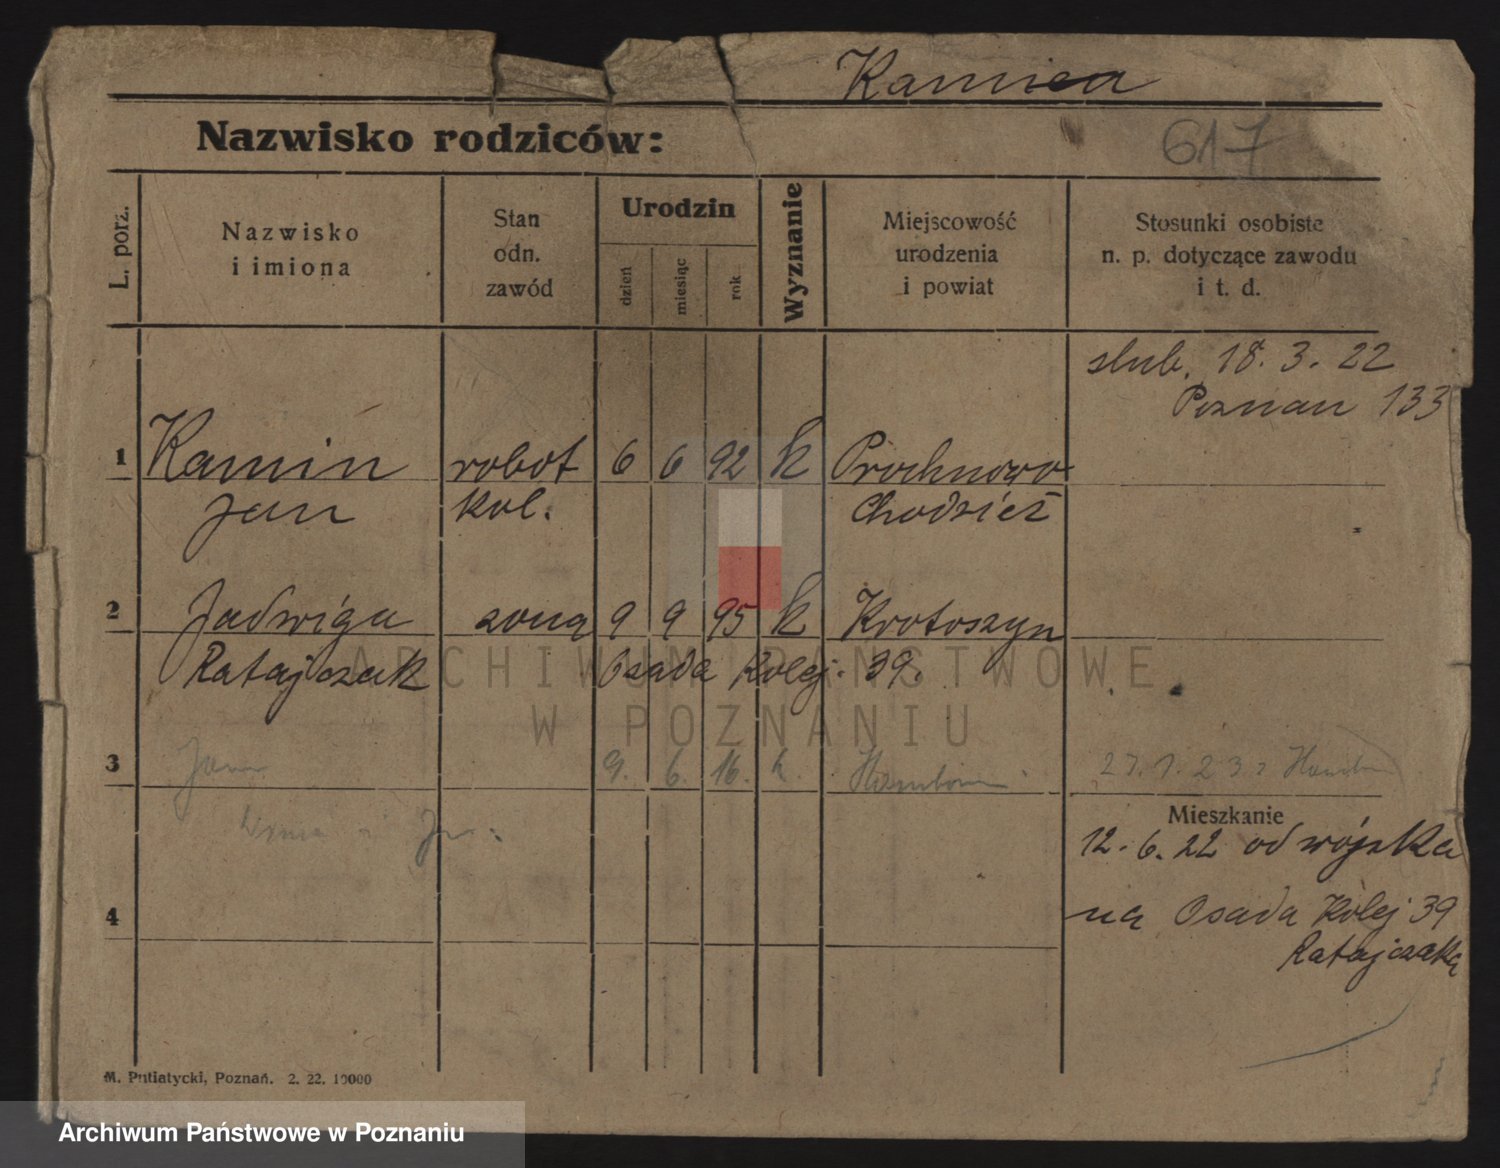 Kamiea
Nazwisko rodziców:
617
L. porz.
Nazwisko
i imiona
Stan
odn.
zawód
Urodzin
dzień
miesiąc
rok
Wyznanie
Miejscowość
urodzenia
i powiat
Stosunki osobiste
n. p. dotyczące zawodu
i t. d.
slub. 18. 3. 22
Poznan 133
1 Kamin robot 6 6 92 k Prochnowo
Jan kol. Chodzież
2 Jadwiga zona 9 9 95 k Krotoszyn
Ratajczak Osada Kolej. 39.
ARCHIWUM PAŃSTWOWE
W POZNANIU
3 9. 6. 16. k.
Mieszkanie
12. 6. 22 od wojska
4 na Osada Kolej 39
Ratajczaka
M. Putiatycki, Poznań. 2. 22. 10000
Archiwum Państwowe w Poznaniu